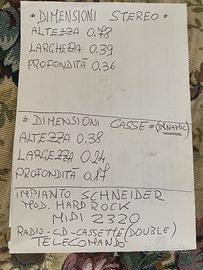 * DIMENSIONI STEREO *
ALTEZZA 0.78
LARGHEZZA 0.39
PROFONDITÀ 0.36
* DIMENSIONI CASSE * (DYNAMIC)
ALTEZZA 0.38
LARGEZZA 0.24
PROFONDITÀ 0.17
IMPIANTO SCHNEIDER
MOD. HARD ROCK
MIDI 2320
RADIO - CD - CASSETTE (DOUBLE)
TELECOMANDO